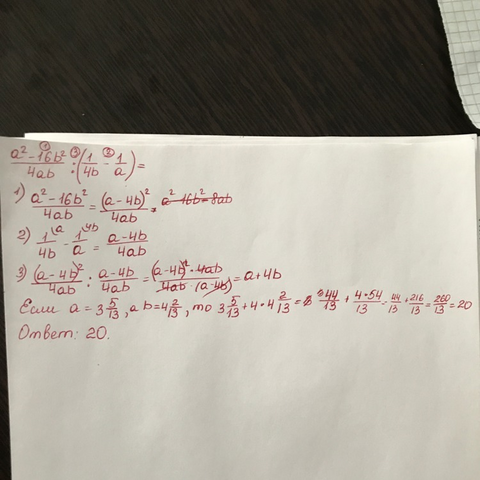 (a² - 16b²)/4ab : (1/4b - 1/a) =
1) (a² - 16b²)/4ab = (a - 4b)²/4ab = a² 16b² = 8ab
2) 1\a/4b - 1\4b/a = (a - 4b)/4ab
3) (a - 4b)²/4ab : (a - 4b)/4ab = (a - 4b)² · 4ab/4ab · (a - 4b) = a + 4b
Если a = 3 5/13, а b = 4 2/13, то 3 5/13 + 4 · 4 2/13 = 44/13 + 4·54/13 = 44/13 + 216/13 = 260/13 = 20
Ответ: 20.